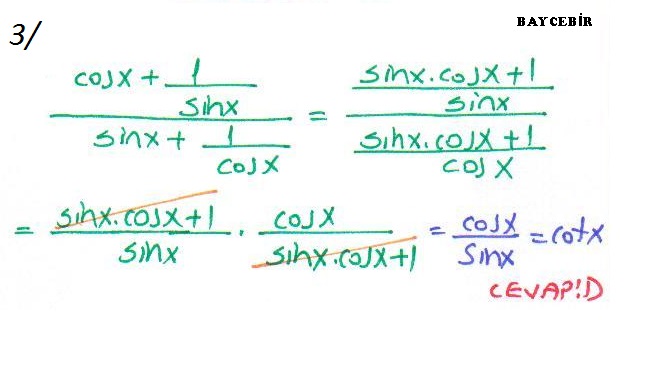 BAY CEBİR
3/
cosx + 1/sinx / sinx + 1/cosx = sinx.cosx+1/sinx / sinx.cosx+1/cosx
= sinx.cosx+1/sinx . cosx/sinx.cosx+1 = cosx/sinx = cotx
CEVAP!D